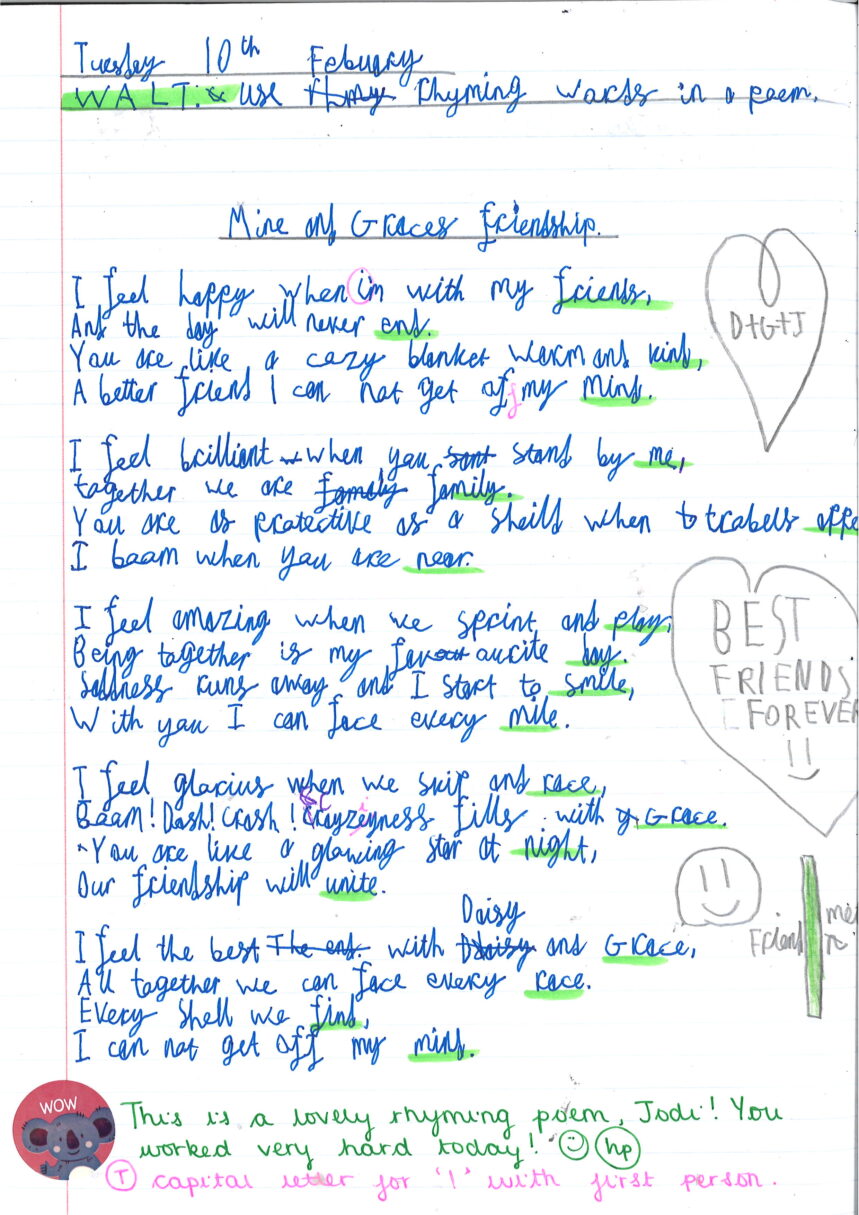 Tuesday 10th Febuary
WALT: use rhyming words in a poem.
Mine and Graces friendship.
I feel happy when im with my friends,
And the day will never end.
D+G+J
You are like a cozy blanket warm and kind,
A better friend I can not get off my mind.
I feel brilliant when you stand by me,
together we are family.
You are as protective as a sheild when trabels appe
I boom when you are near.
I feel amazing when we sprint and play,
Being together is my favourite day.
Saddness runs away and I start to smile,
With you I can face every mile.
BEST
FRIENDS
FOREVER
I feel glorius when we skip and race,
Baam! Dash! Crash! Crayziness fills with Grace.
You are like a glowing star at night,
Our friendship will unite.
I feel the best with Daisy and Grace,
All together we can face every race.
Every shell we find,
I can not get off my mind.
Friend
WOW
This is a lovely rhyming poem, Jodi! You
worked very hard today! hp
T capital letter for 'I' with first person.